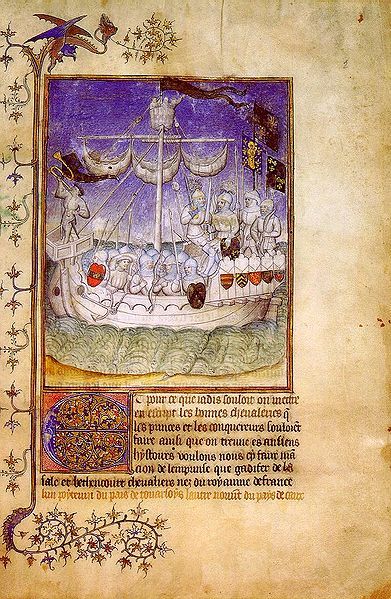 Et pour ce que iadis souloit on mectre
en escript les bonnes cheualeries q̃
les princes et les conquereurs souloient
faire ainsi que on treuue es ansiens
hystoires voulons nous cy faire mā
cion de lemprinse que gadifer de la
sale et bethencourt cheualiers nez du royaume de france
lun poyteuin du païs de touarsoys lautre normt du païs de caux